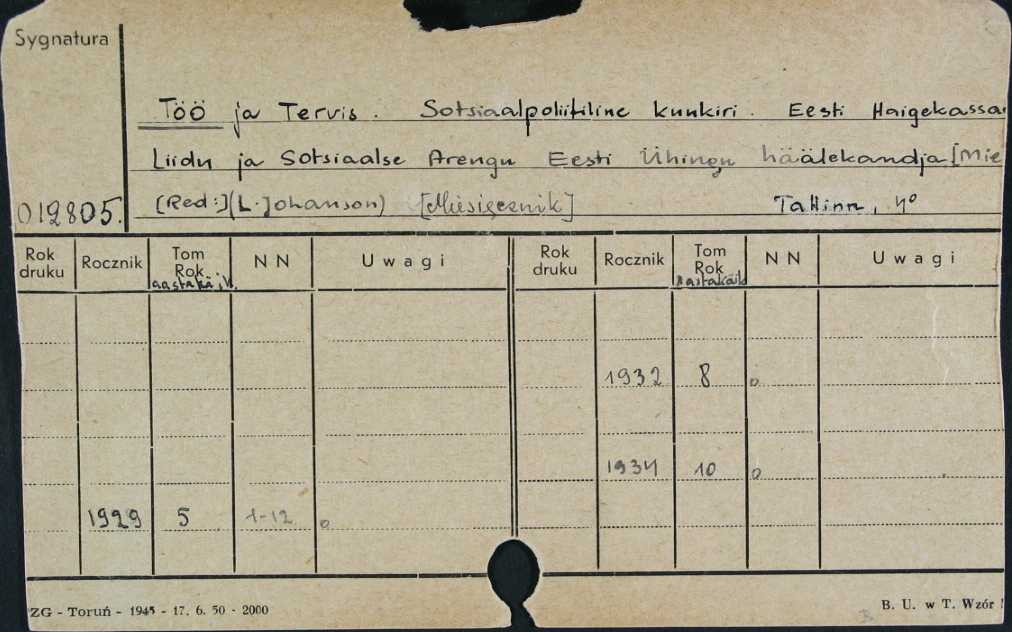 Sygnatura
Töö ja Tervis. Sotsiaalpoliitiline kuukiri. Eesti Haigekassa
Liidu ja Sotsiaalse Arengu Eesti Ühingu häälekandja [Mie
012805. [Red:] (L. Johanson) [Miesięcznik] Tallinn, 4°
Rok druku Rocznik Tom Rok NN Uwagi Rok druku Rocznik Tom Rok aastakäik NN Uwagi
1932 8 o
1934 10 o
1929 5 1-12 o
ZG - Toruń - 1945 - 17. 6. 50 - 2000 B. U. w T. Wzór